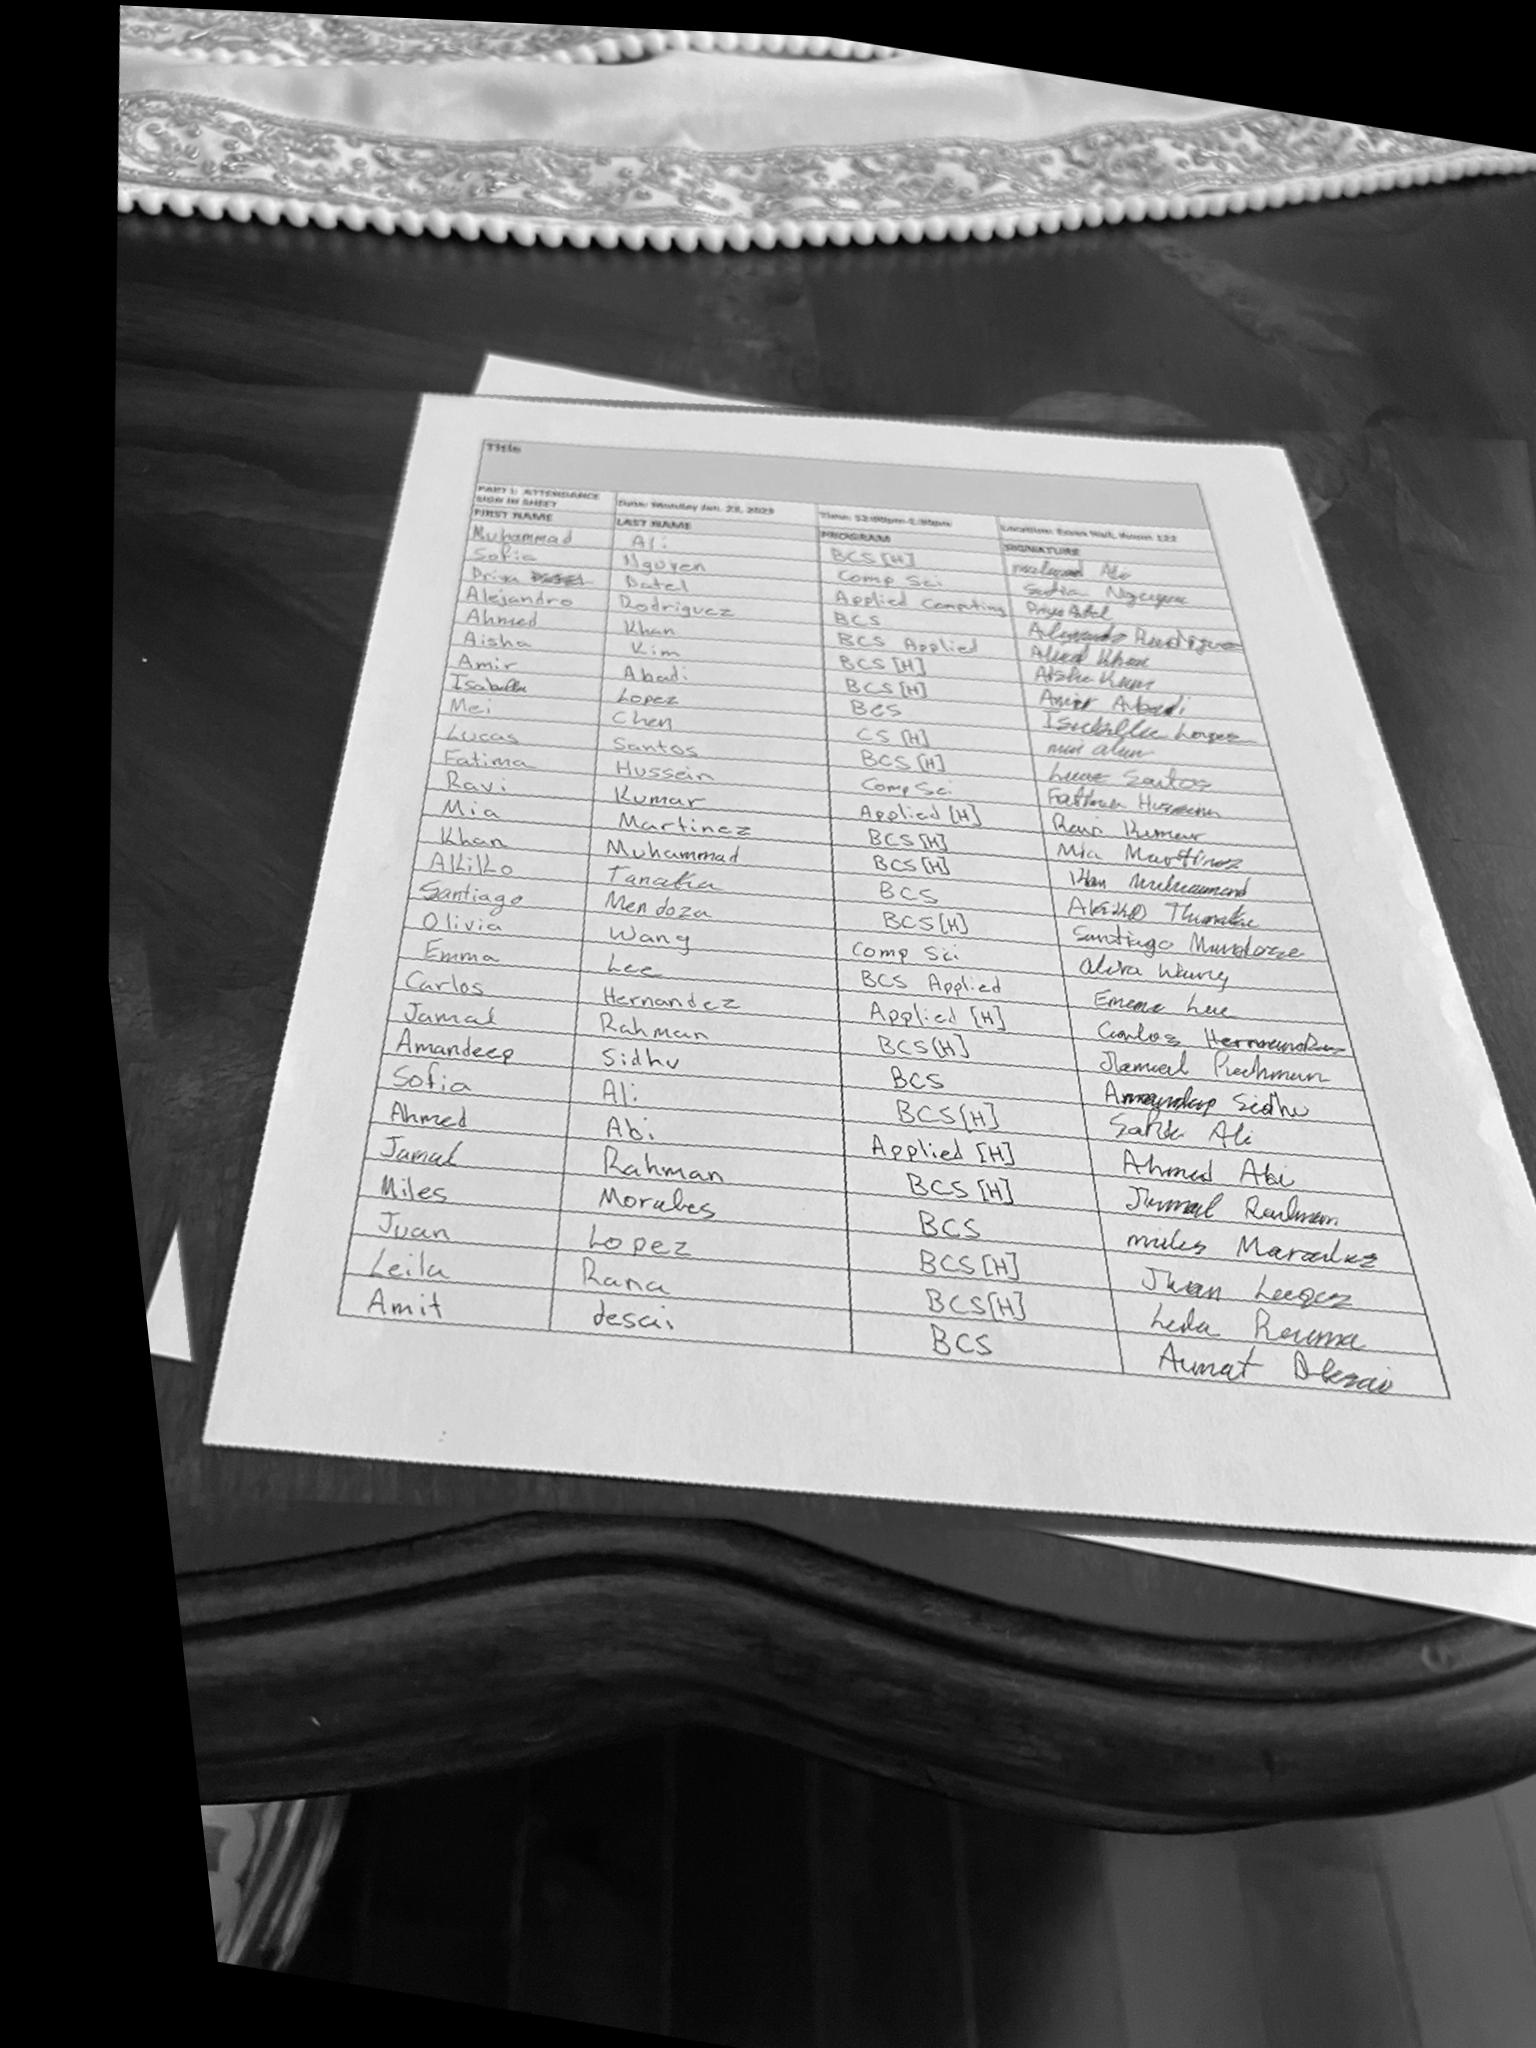 Title
PART 1: ATTENDANCE SIGN IN SHEET Date: Monday Jan. 23, 2023 Time: 12:00pm-1:30pm Location: Hall, Room 122
FIRST NAME LAST NAME PROGRAM SIGNATURE
Muhammad Ali BCS [H] Ali
Sofia Nguyen Comp Sci Sofia Nguyen
Priya Patel Applied Computing Priya Patel
Alejandro Rodriguez BCS Alejandro Rodriguez
Ahmed Khan BCS Applied Ahmed Khan
Aisha Kim BCS [H] Aisha Kim
Amir Abadi BCS [H] Amir Abadi
Isabella Lopez BCS Isabella Lopez
Mei Chen CS [H] mei chen
Lucas Santos BCS [H] Lucas Santos
Fatima Hussein Comp Sci Fatima Hussein
Ravi Kumar Applied [H] Ravi Kumar
Mia Martinez BCS [H] Mia Martinez
Khan Muhammad BCS [H] Khan Muhammad
Akiko Tanaka BCS Akiko Tanaka
Santiago Mendoza BCS [H] Santiago Mendoza
Olivia Wang Comp Sci Olivia Wang
Emma Lee BCS Applied Emma Lee
Carlos Hernandez Applied [H] Carlos Hernandez
Jamal Rahman BCS [H] Jamal Rahman
Amandeep Sidhu BCS Amandeep Sidhu
Sofia Ali BCS [H] Sofia Ali
Ahmed Abi Applied [H] Ahmed Abi
Jamal Rahman BCS [H] Jamal Rahman
Miles Morales BCS miles Morales
Juan Lopez BCS [H] Juan Lopez
Leila Rana BCS [H] Leila Rana
Amit desai BCS Amit Desai